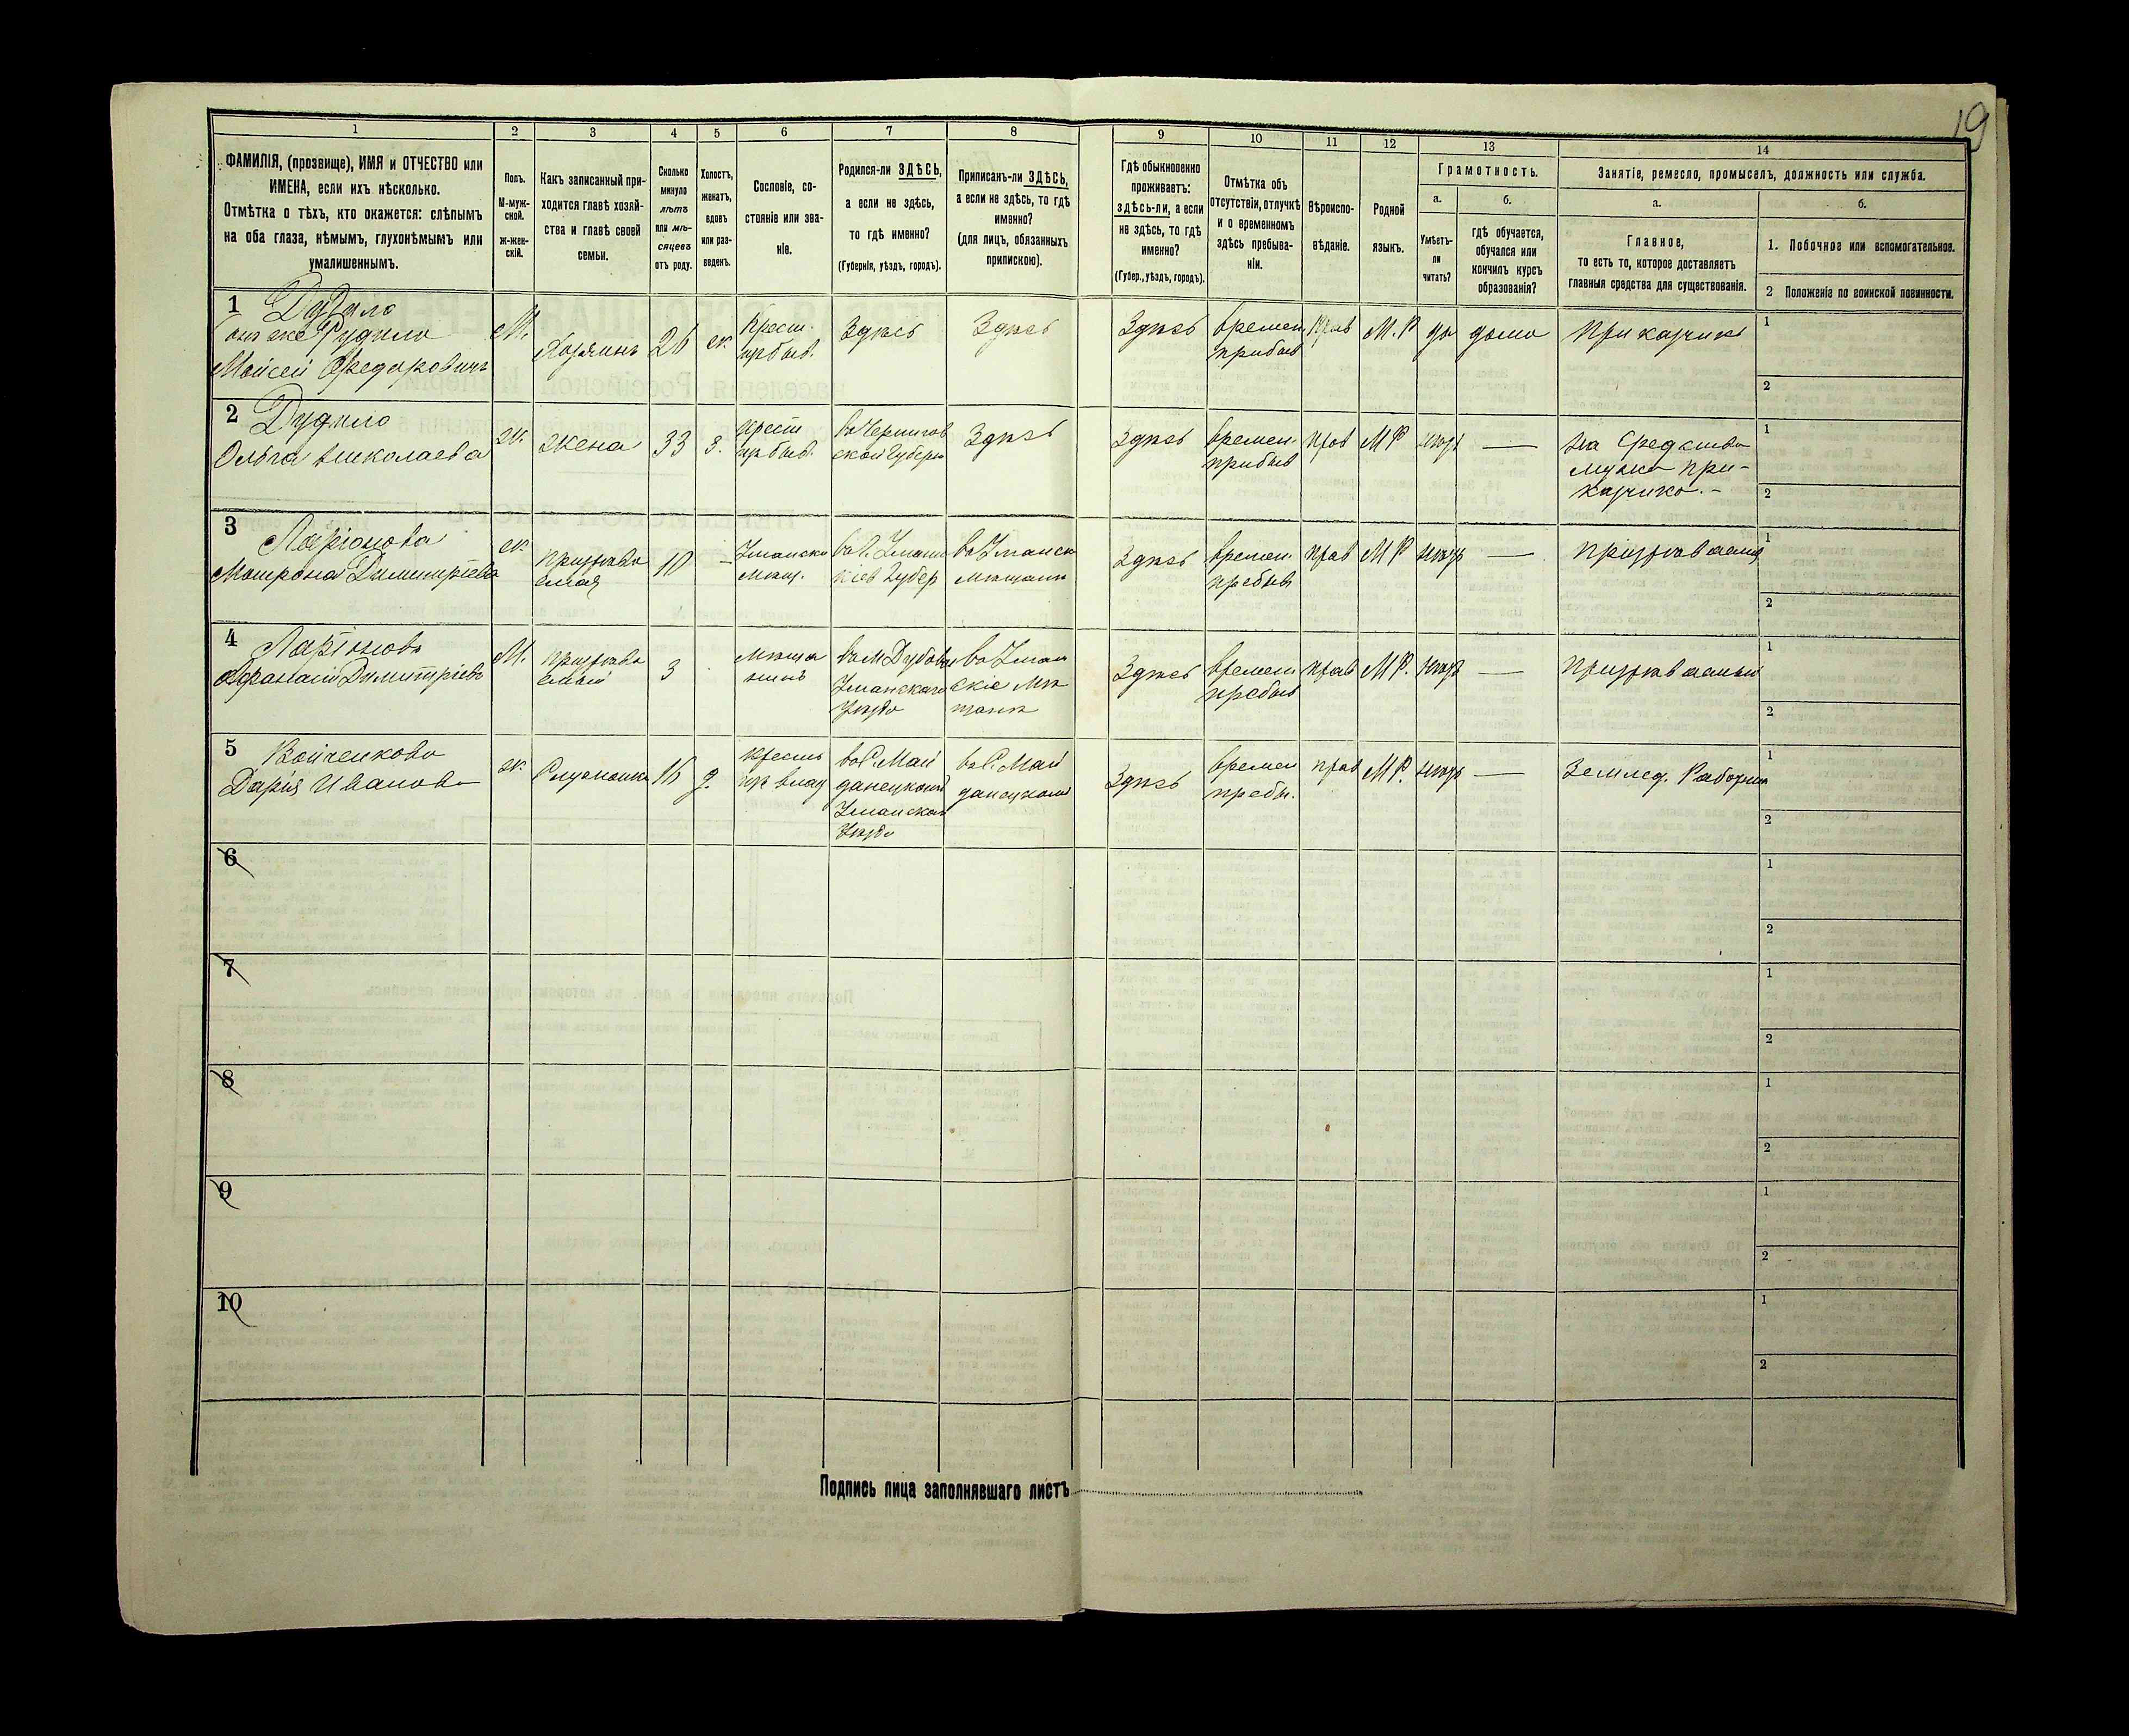 19
1
2
3
4
5
6
7
8
9
10
11
12
13
14
ФАМИЛІЯ, (прозвище), ИМЯ и ОТЧЕСТВО или
ИМЕНА, если ихъ нѣсколько.
Отмѣтка о тѣхъ, кто окажется: слѣпымъ
на оба глаза, нѣмымъ, глухонѣмымъ или
умалишеннымъ.
Полъ.
М-муж-
ской.
ж-жен-
скій.
Какъ записанный при-
ходится главѣ хозяй-
ства и главѣ своей
семьи.
Сколько
минуло
лѣтъ
или мѣ-
сяцевъ
отъ роду.
Холостъ,
женатъ,
вдовъ
или раз-
веденъ.
Сословіе, со-
стояніе или зва-
ніе.
Родился-ли ЗДѢСЬ,
а если не здѣсь,
то гдѣ именно?
(Губернія, уѣздъ, городъ).
Приписанъ-ли ЗДѢСЬ,
а если не здѣсь, то гдѣ
именно?
(для лицъ, обязанныхъ
припискою).
Гдѣ обыкновенно
проживаетъ:
здѣсь-ли, а если
не здѣсь, то гдѣ
именно?
(Губер., уѣздъ, городъ).
Отмѣтка объ
отсутствіи, отлучкѣ
и о временномъ
здѣсь пребыва-
ніи.
Вѣроиспо-
вѣданіе.
Родной
языкъ.
Грамотность.
а.
Умѣетъ-
ли
читать?
б.
гдѣ обучается,
обучался или
кончилъ курсъ
образованія?
Занятіе, ремесло, промыселъ, должность или служба.
а.
Главное,
то есть то, которое доставляетъ
главныя средства для существованія.
б.
1. Побочное или вспомогательное.
2 Положеніе по воинской повинности.
1 Дудило
онъ же Рудило
Мойсей Федоровичъ
М.
Хозяинъ
26
ж.
Крест.
Здѣсь
Здѣсь
Здѣсь
времен
прибыв
прав
М.Р
да
дома
Прикащикъ
1
2
2 Дудило
Ольга Николаева
ж.
жена
33
з.
крест
въ Чернигов
ской Губерн
Здѣсь
Здѣсь
времен
прибыв
прав
МР
негр
—
На средства
мужа при-
кащика.-
1
2
3 Ларіонова
Мотрона Димитріева
ж.
призрѣва
емая
10
—
Уманска
мѣщ.
въ г. Умани
Кіев Губер
въ Уманск
мѣщанк
Здѣсь
времен
пребыв
прав
МР
негр
—
призрѣваемая
1
2
4 Ларіоновъ
Афанасій Димитріевъ
М.
призрѣва
емый
3
мѣща
нинъ
въ м Дубовы
Уманскаго
Уѣзда
въ Уман
скіе мѣ
щане
Здѣсь
времен
пребыв
прав
МР.
негр
—
призрѣваемый
1
2
5 Войченкова
Дарія Иванова
ж.
Служанка
16
д.
крестъ
въ с. Май
данецкой
Уманскаго
Уѣзда
въ с. Май
данецкой
Здѣсь
времен
пребы.
прав
МР.
негр
—
Землед. Работниц
1
2
6
1
2
7
1
2
8
1
2
9
1
2
10
1
2
Подпись лица заполнявшаго листъ